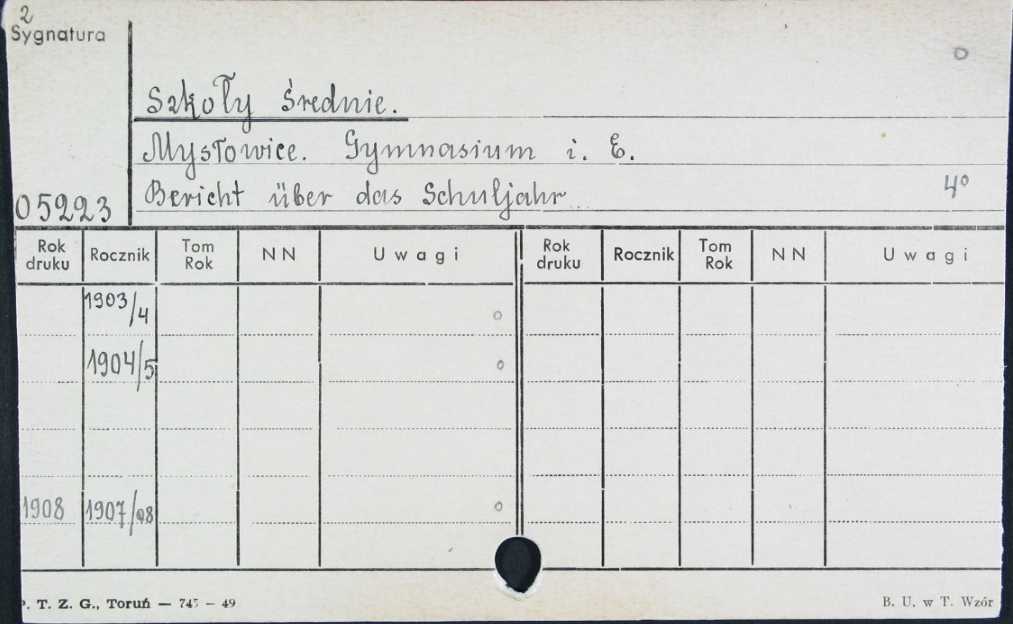 2
Sygnatura
o
Szkoły średnie.
Mysłowice. Gymnasium i. E.
Bericht über das Schuljahr 4°
05223
Rok druku Rocznik Tom Rok NN Uwagi Rok druku Rocznik Tom Rok NN Uwagi
1903/4 o
1904/5 o
1908 1907/08 o
. T. Z. G., Toruń — 745 — 49 B. U. w T. Wzór